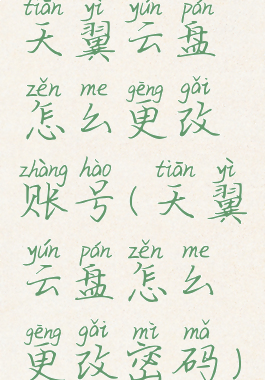 tiān yì yún pán
天翼云盘
zěn me gēng gǎi
怎么更改
zhàng hào tiān yì
账号(天翼
yún pán zěn me
云盘怎么
gēng gǎi mì mǎ
更改密码)